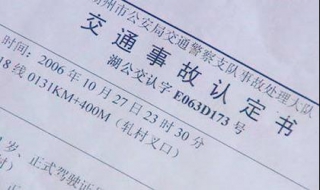 州市公安局交通警察支队事故处理大队
交通事故认定书
湖公交认字 E063D173 号
时间：2006 年 10 月 27 日 23 时 30 分
18 线 0131KM+400M（轧村叉口）
岁、正式驾驶证